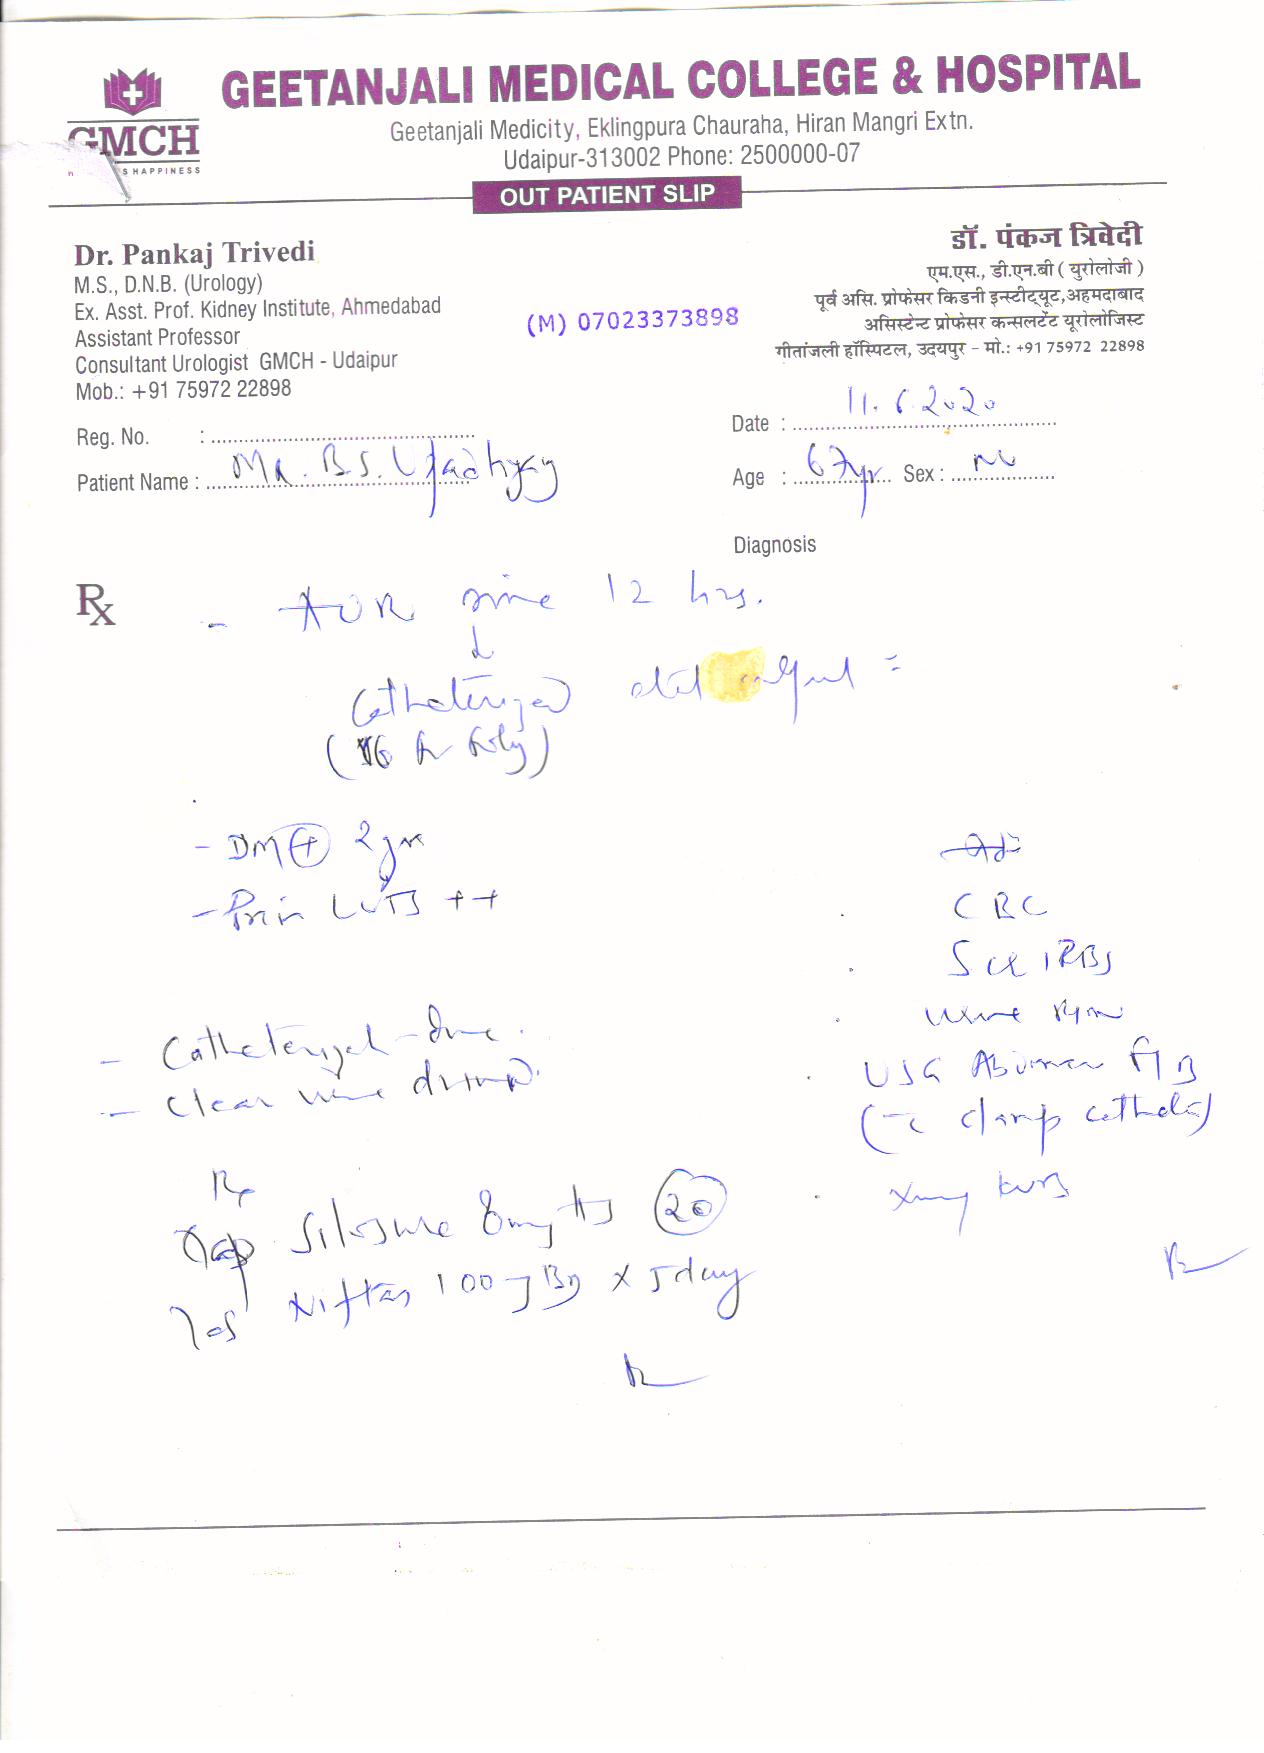 GEETANJALI MEDICAL COLLEGE & HOSPITAL
GMCH
S HAPPINESS
Geetanjali Medicity, Eklingpura Chauraha, Hiran Mangri Extn.
Udaipur-313002 Phone: 2500000-07
OUT PATIENT SLIP
Dr. Pankaj Trivedi
M.S., D.N.B. (Urology)
Ex. Asst. Prof. Kidney Institute, Ahmedabad
Assistant Professor
Consultant Urologist GMCH - Udaipur
Mob.: +91 75972 22898
(M) 07023373898
डॉ. पंकज त्रिवेदी
एम.एस., डी.एन.बी ( युरोलोजी )
पूर्व असि. प्रोफेसर किडनी इन्स्टीट्यूट,अहमदाबाद
असिस्टेन्ट प्रोफेसर कन्सलटेंट यूरोलोजिस्ट
गीतांजली हॉस्पिटल, उदयपुर - मो.: +91 75972 22898
Reg. No. :
Date : 11.6.2020
Patient Name : Mr. B.S. Upadhyay
Age : 67yr Sex : M
Diagnosis
Rx
- AUR since 12 hrs.
↓
Catheterized
(16 Fr Foley)
- DM (+) 2 yr
- LUTS ++
CBC
S CR / RBS
Urine
USG Abdomen
(c clamp catheter)
Xray KUB
- Catheterized - done.
- Clear urine drained.
Rx
Cap Silosure 8mg HS (20)
Niftas 100 mg BD x 5 day